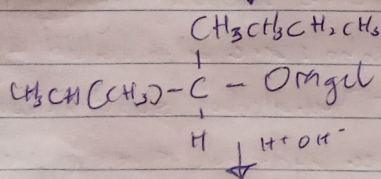 CH3CH3CH2CH3
CH3CH(CH3)-C-OMgCl
H
H+ OH-